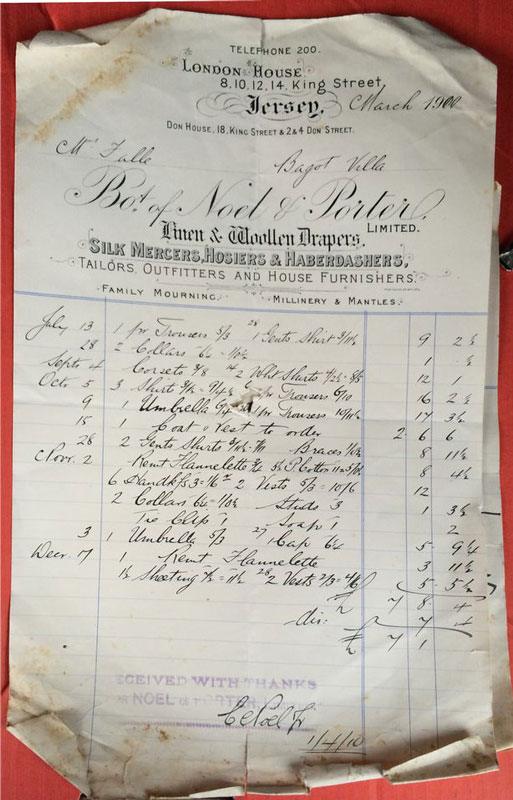 TELEPHONE 200.
LONDON HOUSE.
8, 10, 12, 14. King Street,
Jersey, March 1900
DON HOUSE, 18, KING STREET & 2 & 4 DON STREET.
Falle Bagot Villa
Bot. of Noel & Porter, LIMITED.
Linen & Woollen Drapers,
SILK MERCERS, HOSIERS & HABERDASHERS,
TAILORS, OUTFITTERS AND HOUSE FURNISHERS.
FAMILY MOURNING. MILLINERY & MANTLES.
July 13 1 pr Trousers 5/3 28 1 Gents Shirt 3/11½ 9 2½
28 2 Collars 1 ½
Septr 4 Corsets 3/8 14 2 Shirts 12 1
Octo 5 3 Shirt pr Trousers 6/10 16 2½
9 1 Umbrella 1 pr Trousers 10/10½ 17 3½
15 1 Coat & Vest to order 2 6 6
28 2 Gents Shirts Braces 8 11½
Novr. 2 Remt Flannelette Cotton 8 4½
6 Handkfs 2 Vests 5/3 = 10/6 12
2 Collars Studs 3 1 3½
Tie Clip 1 Soap 1 2
3 1 Umbrella 5/3 27 1 Cap 6¼ 5 9¼
Decr. 17 1 Remt Flannelette 3 11½
1½ Sheeting 28 2 Vests 2/3 = 4/6 5 5½
£ 7 8 4
dis: 7 4
£ 7 1
RECEIVED WITH THANKS
FOR NOEL & PORTER
1/4/10